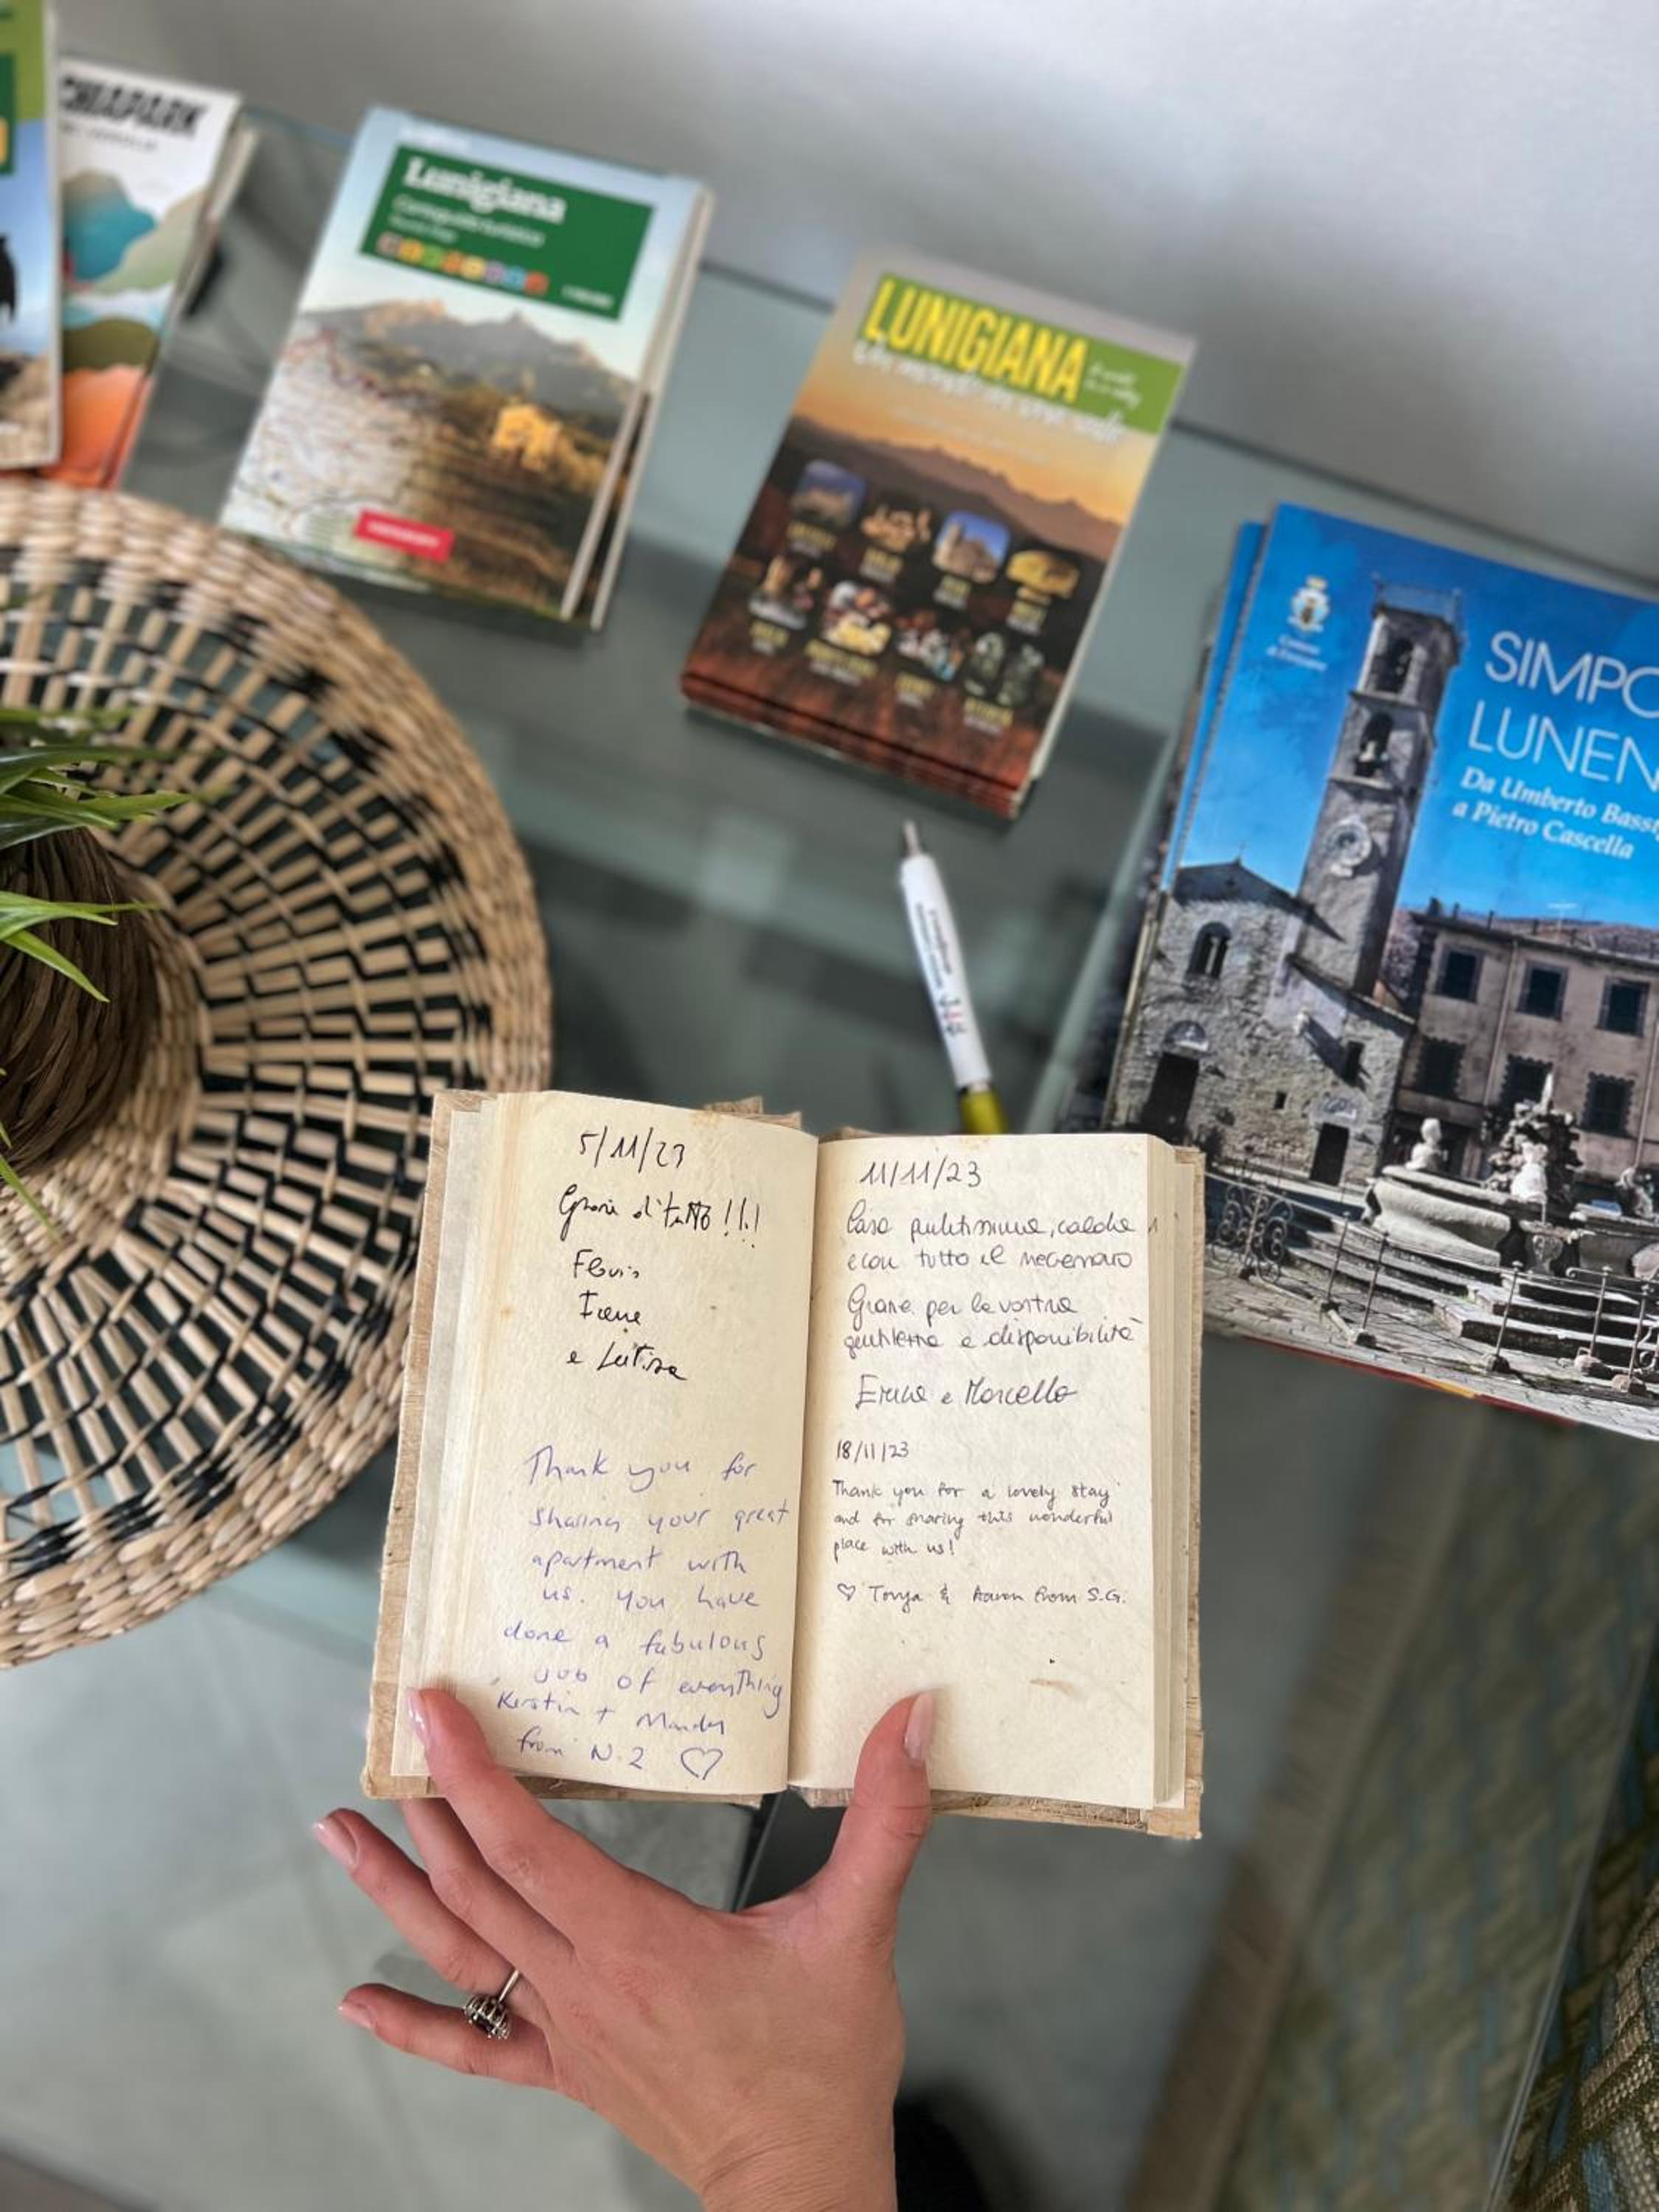 CHIAPARK
Lunigiana
LUNIGIANA
SIMPO
LUNEN
Da Umberto Bassi
a Pietro Cascella
5/11/23
Grazie di tutto!!!
Flavia
Irene
e Letizia
Thank you for
sharing your great
apartment with
us. you have
done a fabulous
job of everything
Kerstin + Mandy
from N.2 ♡
11/11/23
Casa pulitissima, calda
e con tutto il necessario
Grazie per la vostra
gentilezza e disponibilità
Erica e Marcello
18/11/23
Thank you for a lovely stay
and for sharing this wonderful
place with us!
♡ Tonya & Aaron from S.G.